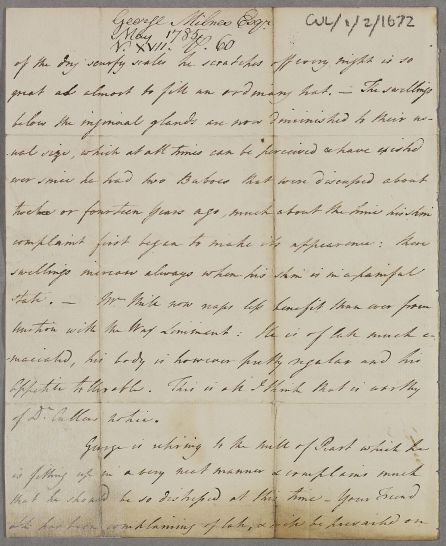 George Milnes Esqr
May 1785
N. XVIII. P. 60
CUL/1/2/1672
of the dry scurfy scales he scratches off every night is so
great as almost to fill an ordinary hat. — The swellings
below the inguinal glands are now diminished to their us-
ual size, which at all times can be perceived & have existed
ever since he had two Buboes that were discussed about
twelve or fourteen years ago, much about the time his skin
complaint first began to make its appearance: these
swellings increase always when his skin is in a painful
State. — Mr Miln now reaps less benefit than ever from
unction with the Wax Liniment: He is of late much e-
maciated, his body is however pretty regular and his
Appetite tolerable. This is all I think that is worthy
of Dr Cullens notice.
George is retiring to the Mill of Peart which he
is fitting up in a very neat manner & complains much
that he should be so distressed at this time — Your Friend
has been complaining of late, & be prevailed on